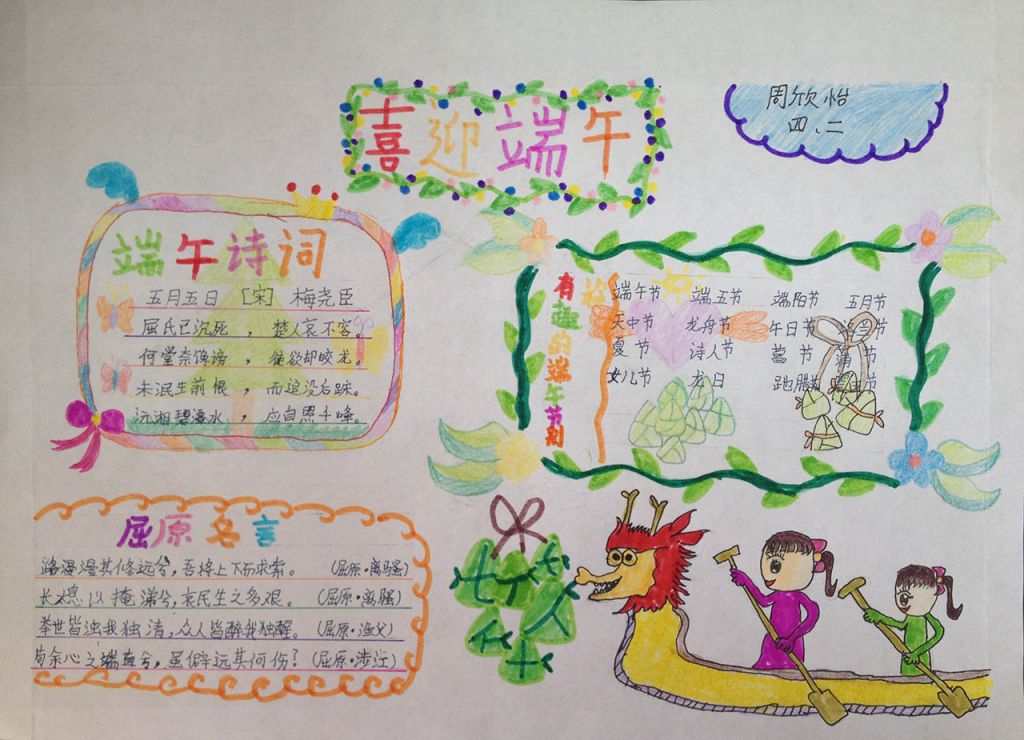 喜迎端午
周欣怡
四、二
端午诗词
五月五日 [宋] 梅尧臣
屈氏已沉死，楚人哀不容。
何尝奈谗谤，徒欲却蛟龙。
未泯生前恨，而追没后踪。
沅湘碧潭水，应自照千峰。
有趣的端午节别
端午节 端五节 端阳节 五月节
天中节 龙舟节 午日节
夏节 诗人节 菖节 蒲节
女儿节 龙日 地腊
屈原名言
路漫漫其修远兮，吾将上下而求索。(屈原·离骚)
长太息以掩涕兮，哀民生之多艰。(屈原·离骚)
举世皆浊我独清，众人皆醉我独醒。(屈原·渔父)
苟余心之端直兮，虽僻远其何伤？(屈原·涉江)